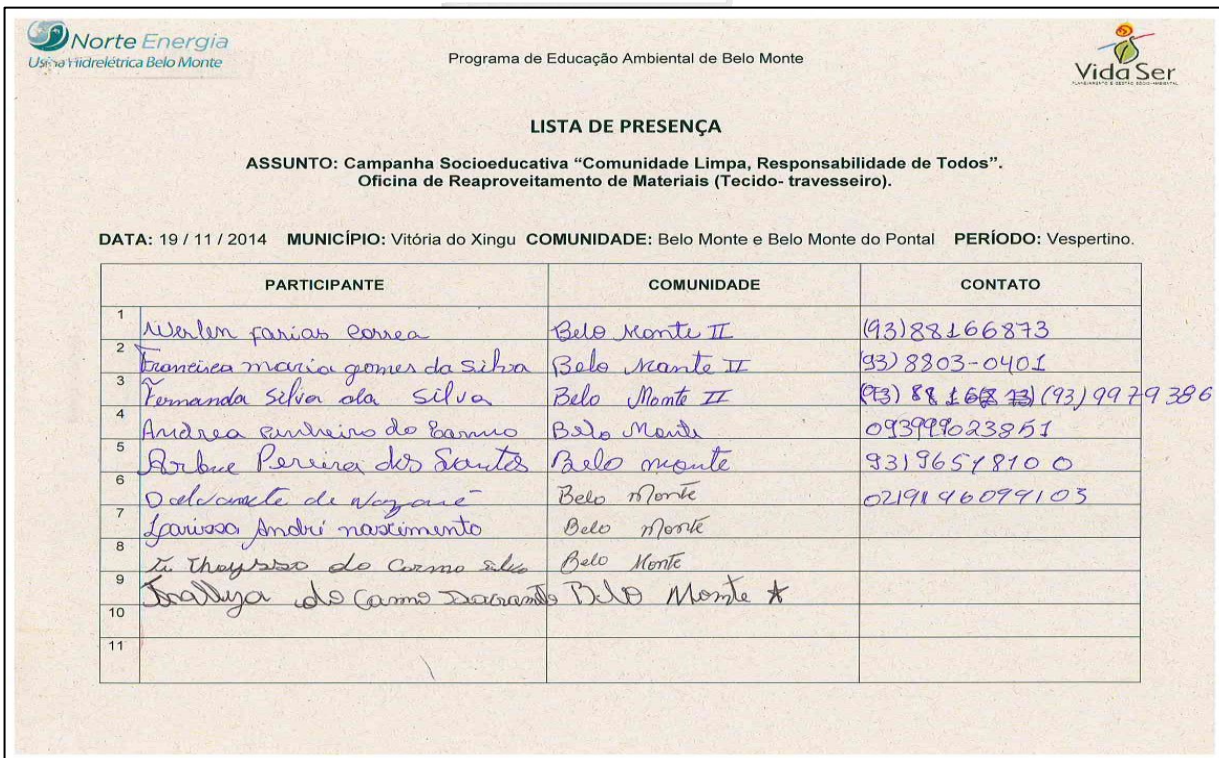 Norte Energia
Usina Hidrelétrica Belo Monte
Programa de Educação Ambiental de Belo Monte
Vida Ser
LISTA DE PRESENÇA
ASSUNTO: Campanha Socioeducativa “Comunidade Limpa, Responsabilidade de Todos”.
Oficina de Reaproveitamento de Materiais (Tecido- travesseiro).
DATA: 19 / 11 / 2014 MUNICÍPIO: Vitória do Xingu COMUNIDADE: Belo Monte e Belo Monte do Pontal PERÍODO: Vespertino.
PARTICIPANTE COMUNIDADE CONTATO
1 farias correa Belo Monte II (93)88166873
2 Francisca maria gomes da Silva Belo Monte II (93) 8803-0401
3 Fernanda Silva da Silva Belo Monte II (93) 9979386
4 Andrea do Belo Monte 093999023851
5 Pereira dos Santos Belo monte
6 de Nazaré Belo Monte
7 Larissa André nascimento Belo Monte
8 do Carmo Silva Belo Monte
9 do Carmo Belo Monte
10
11